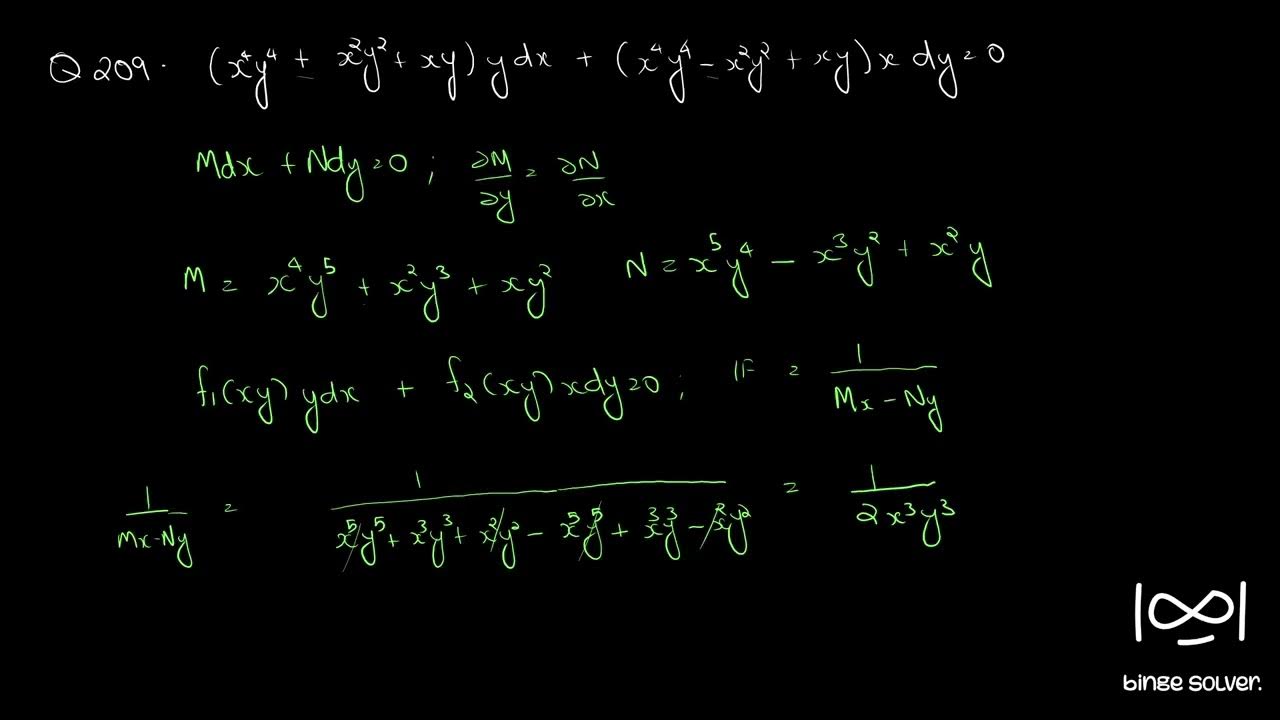 Q 209. (x⁴y⁴ + x²y² + xy) y dx + (x⁴y⁴ - x²y² + xy) x dy = 0
Mdx + Ndy = 0 ; ∂M/∂y = ∂N/∂x
M = x⁴y⁵ + x²y³ + xy² N = x⁵y⁴ - x³y² + x²y
f₁(xy) ydx + f₂(xy) xdy = 0 ; IF = 1/(Mx - Ny)
1/(Mx - Ny) = 1/(x⁵y⁵ + x³y³ + x²y² - x⁵y⁵ + x³y³ - x²y²) = 1/(2x³y³)
binge solver.